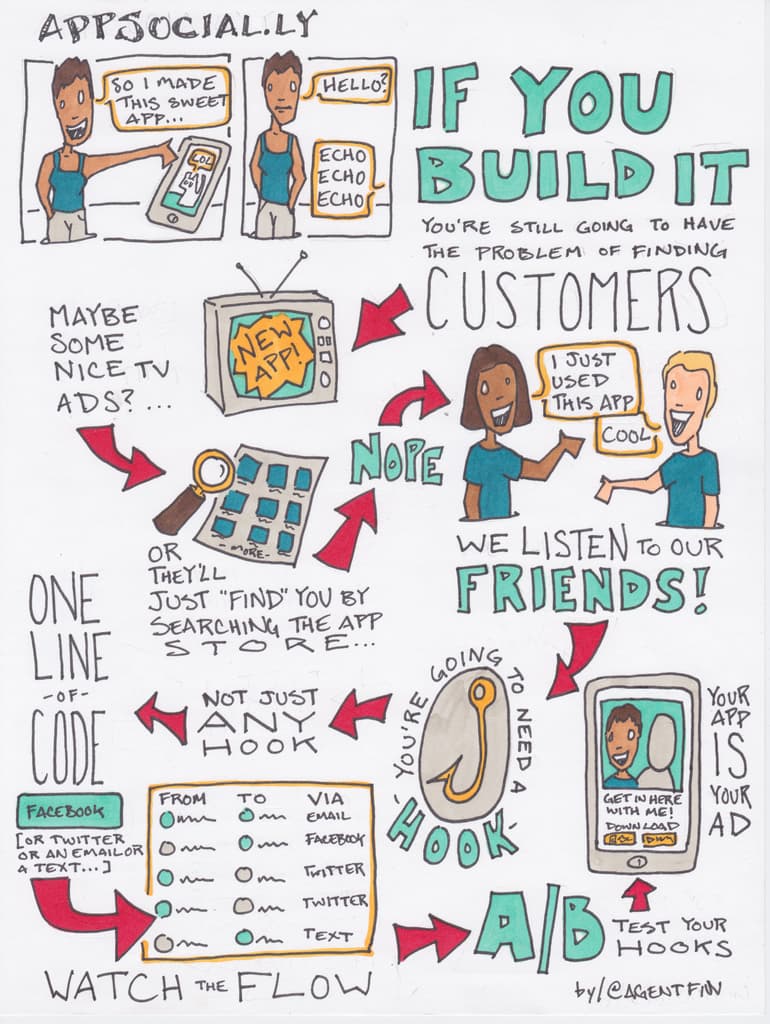 APPSOCIAL.LY
SO I MADE
THIS SWEET
APP...
LOL
HELLO?
ECHO
ECHO
ECHO
IF YOU
BUILD IT
YOU'RE STILL GOING TO HAVE
THE PROBLEM OF FINDING
CUSTOMERS
MAYBE
SOME
NICE TV
ADS?...
NEW
APP!
OR
THEY'LL
JUST "FIND" YOU BY
SEARCHING THE APP
STORE...
-MORE-
NOPE
I JUST
USED
THIS APP
COOL
WE LISTEN TO OUR
FRIENDS!
YOU'RE GOING TO NEED A
HOOK
NOT JUST
ANY
HOOK
ONE
LINE
-OF-
CODE
FACEBOOK
[OR TWITTER
OR AN EMAIL OR
A TEXT...]
FROM TO VIA
EMAIL
FACEBOOK
TWITTER
TWITTER
TEXT
WATCH THE FLOW
A/B
TEST YOUR
HOOKS
GET IN HERE
WITH ME!
DOWNLOAD
YOUR
APP
IS
YOUR
AD
by/@AGENTFIN